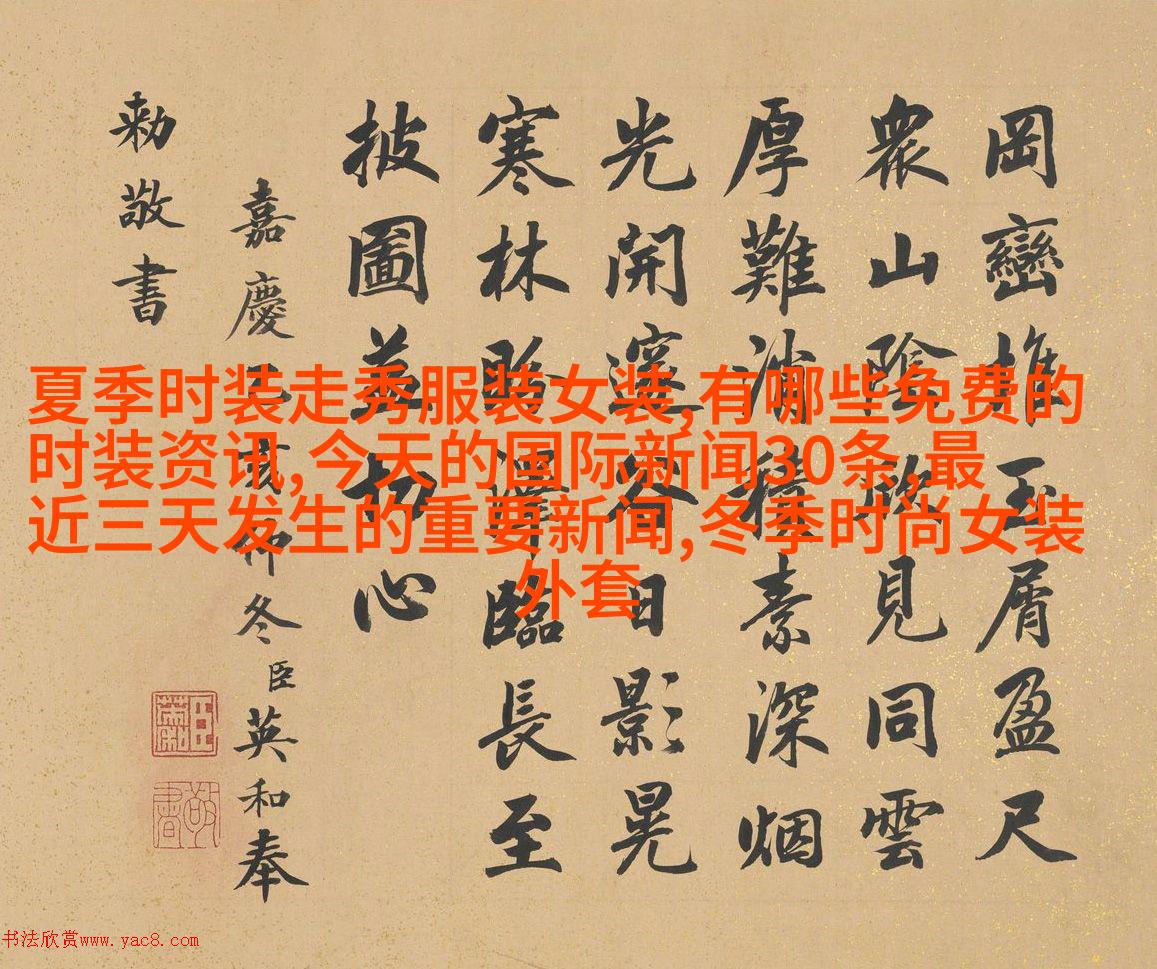 岡巒堆玉屑盈尺
衆山陰見同雲
厚難消積素深烟
光開邃谷日影晃
寒林臨長至
披圖益切心
嘉慶仲冬臣英和奉
勅敬書
夏季时装走秀服装女装,有哪些免费的
时装资讯,今天的国际新闻30条,最
近三天发生的重要新闻,冬季时尚女装
外套
敬書
书法欣赏www.yac8.com